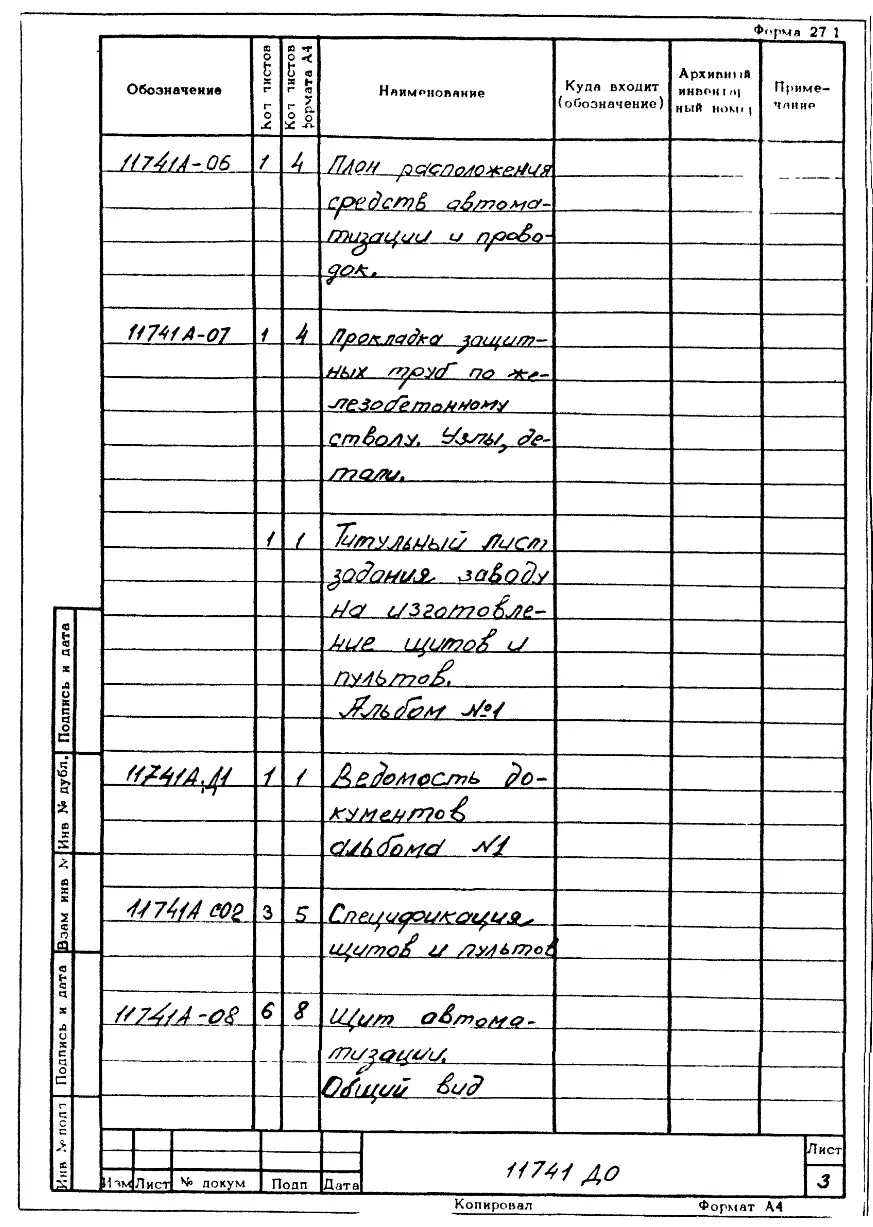 Форма 27 1
Обозначение
Кол листов
Кол листов формата А4
Наименование
Куда входит (обозначение)
Архивный инвентарный номер
Примечание
11741А-06 1 4 План расположения
средств автома-
тизации и прово-
док.
11741А-07 1 4 Прокладка защит-
ных труб по же-
лезобетонному
стволу. Узлы, де-
тали.
1 1 Титульный лист
задания заводу
на изготовле-
ние щитов и
пультов.
Альбом №1
11741А.Д1 1 1 Ведомость до-
кументов
альбома №1
11741А СО2 3 5 Спецификация
щитов и пультов
11741А-08 6 8 Щит автома-
тизации.
Общий вид
Подпись и дата
Инв № дубл.
Взам инв №
Подпись и дата
Инв № подл
Изм Лист № докум Подп Дата
11741 ДО
Лист
3
Копировал Формат А4